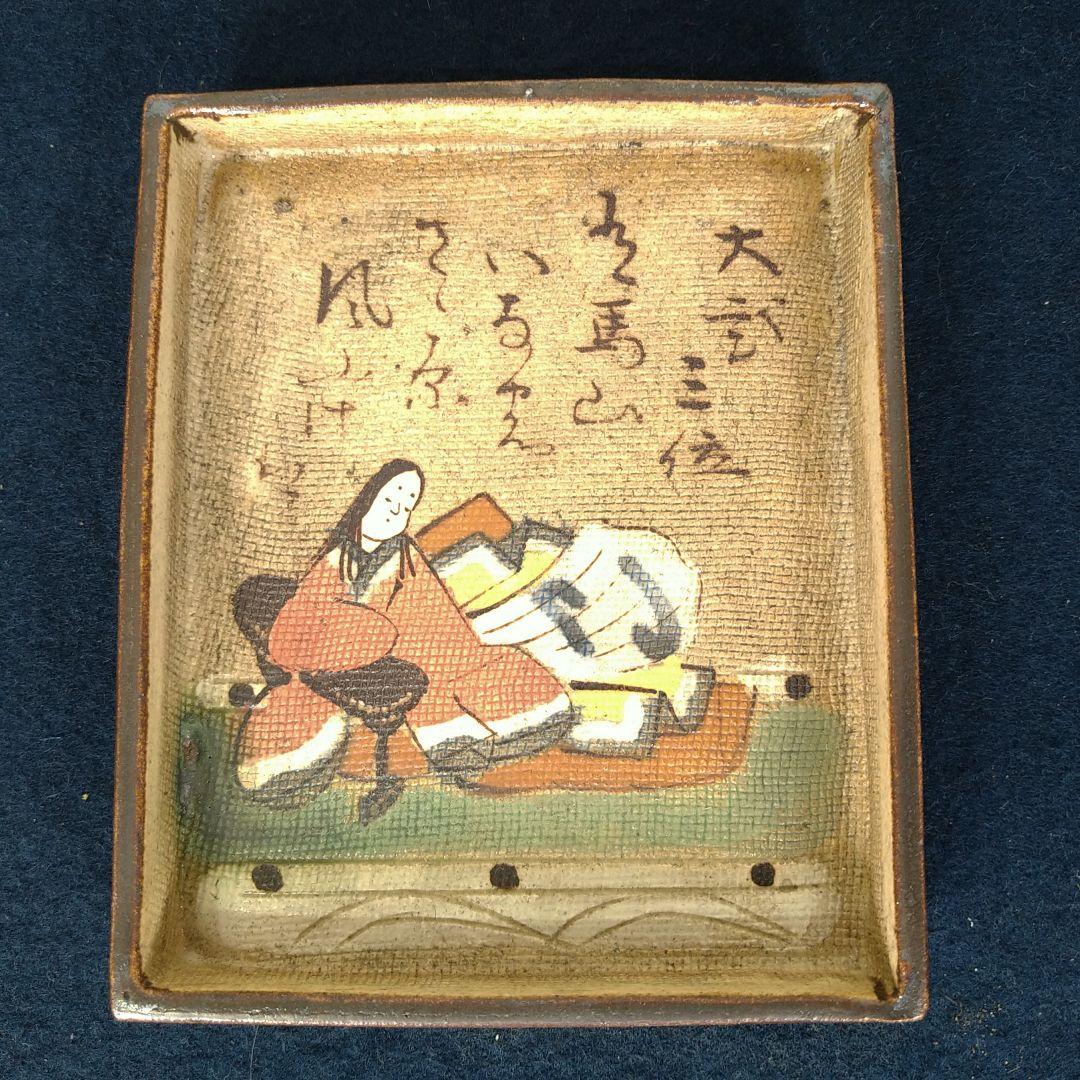 大弐三位
有馬山
いなの
さゝ原
風ふけは